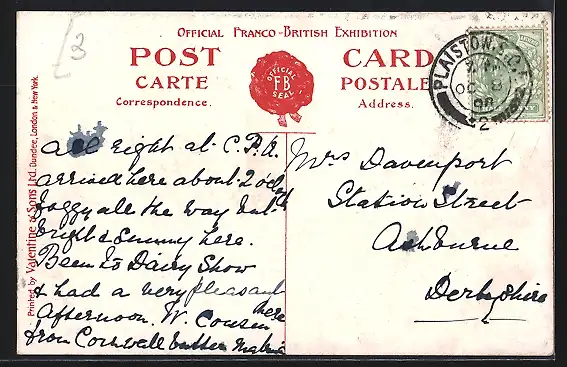 [3
Official Franco-British Exhibition
POST CARD
CARTE POSTALE
Correspondence. Address.
OFFICIAL
F.B
SEAL
PLAISTOW. S.O.
OC 8
08
Printed by Valentine & Sons Ltd. Dundee, London & New York.
All right at C.P.R.
arrived here about 2 o'clock
foggy all the way but
bright & sunny here.
Been to Dairy Show
& had a very pleasant
afternoon. W. Cousin here
from Cornwall butter making
Mrs Davenport
Station Street
Ashbourne
Derbyshire